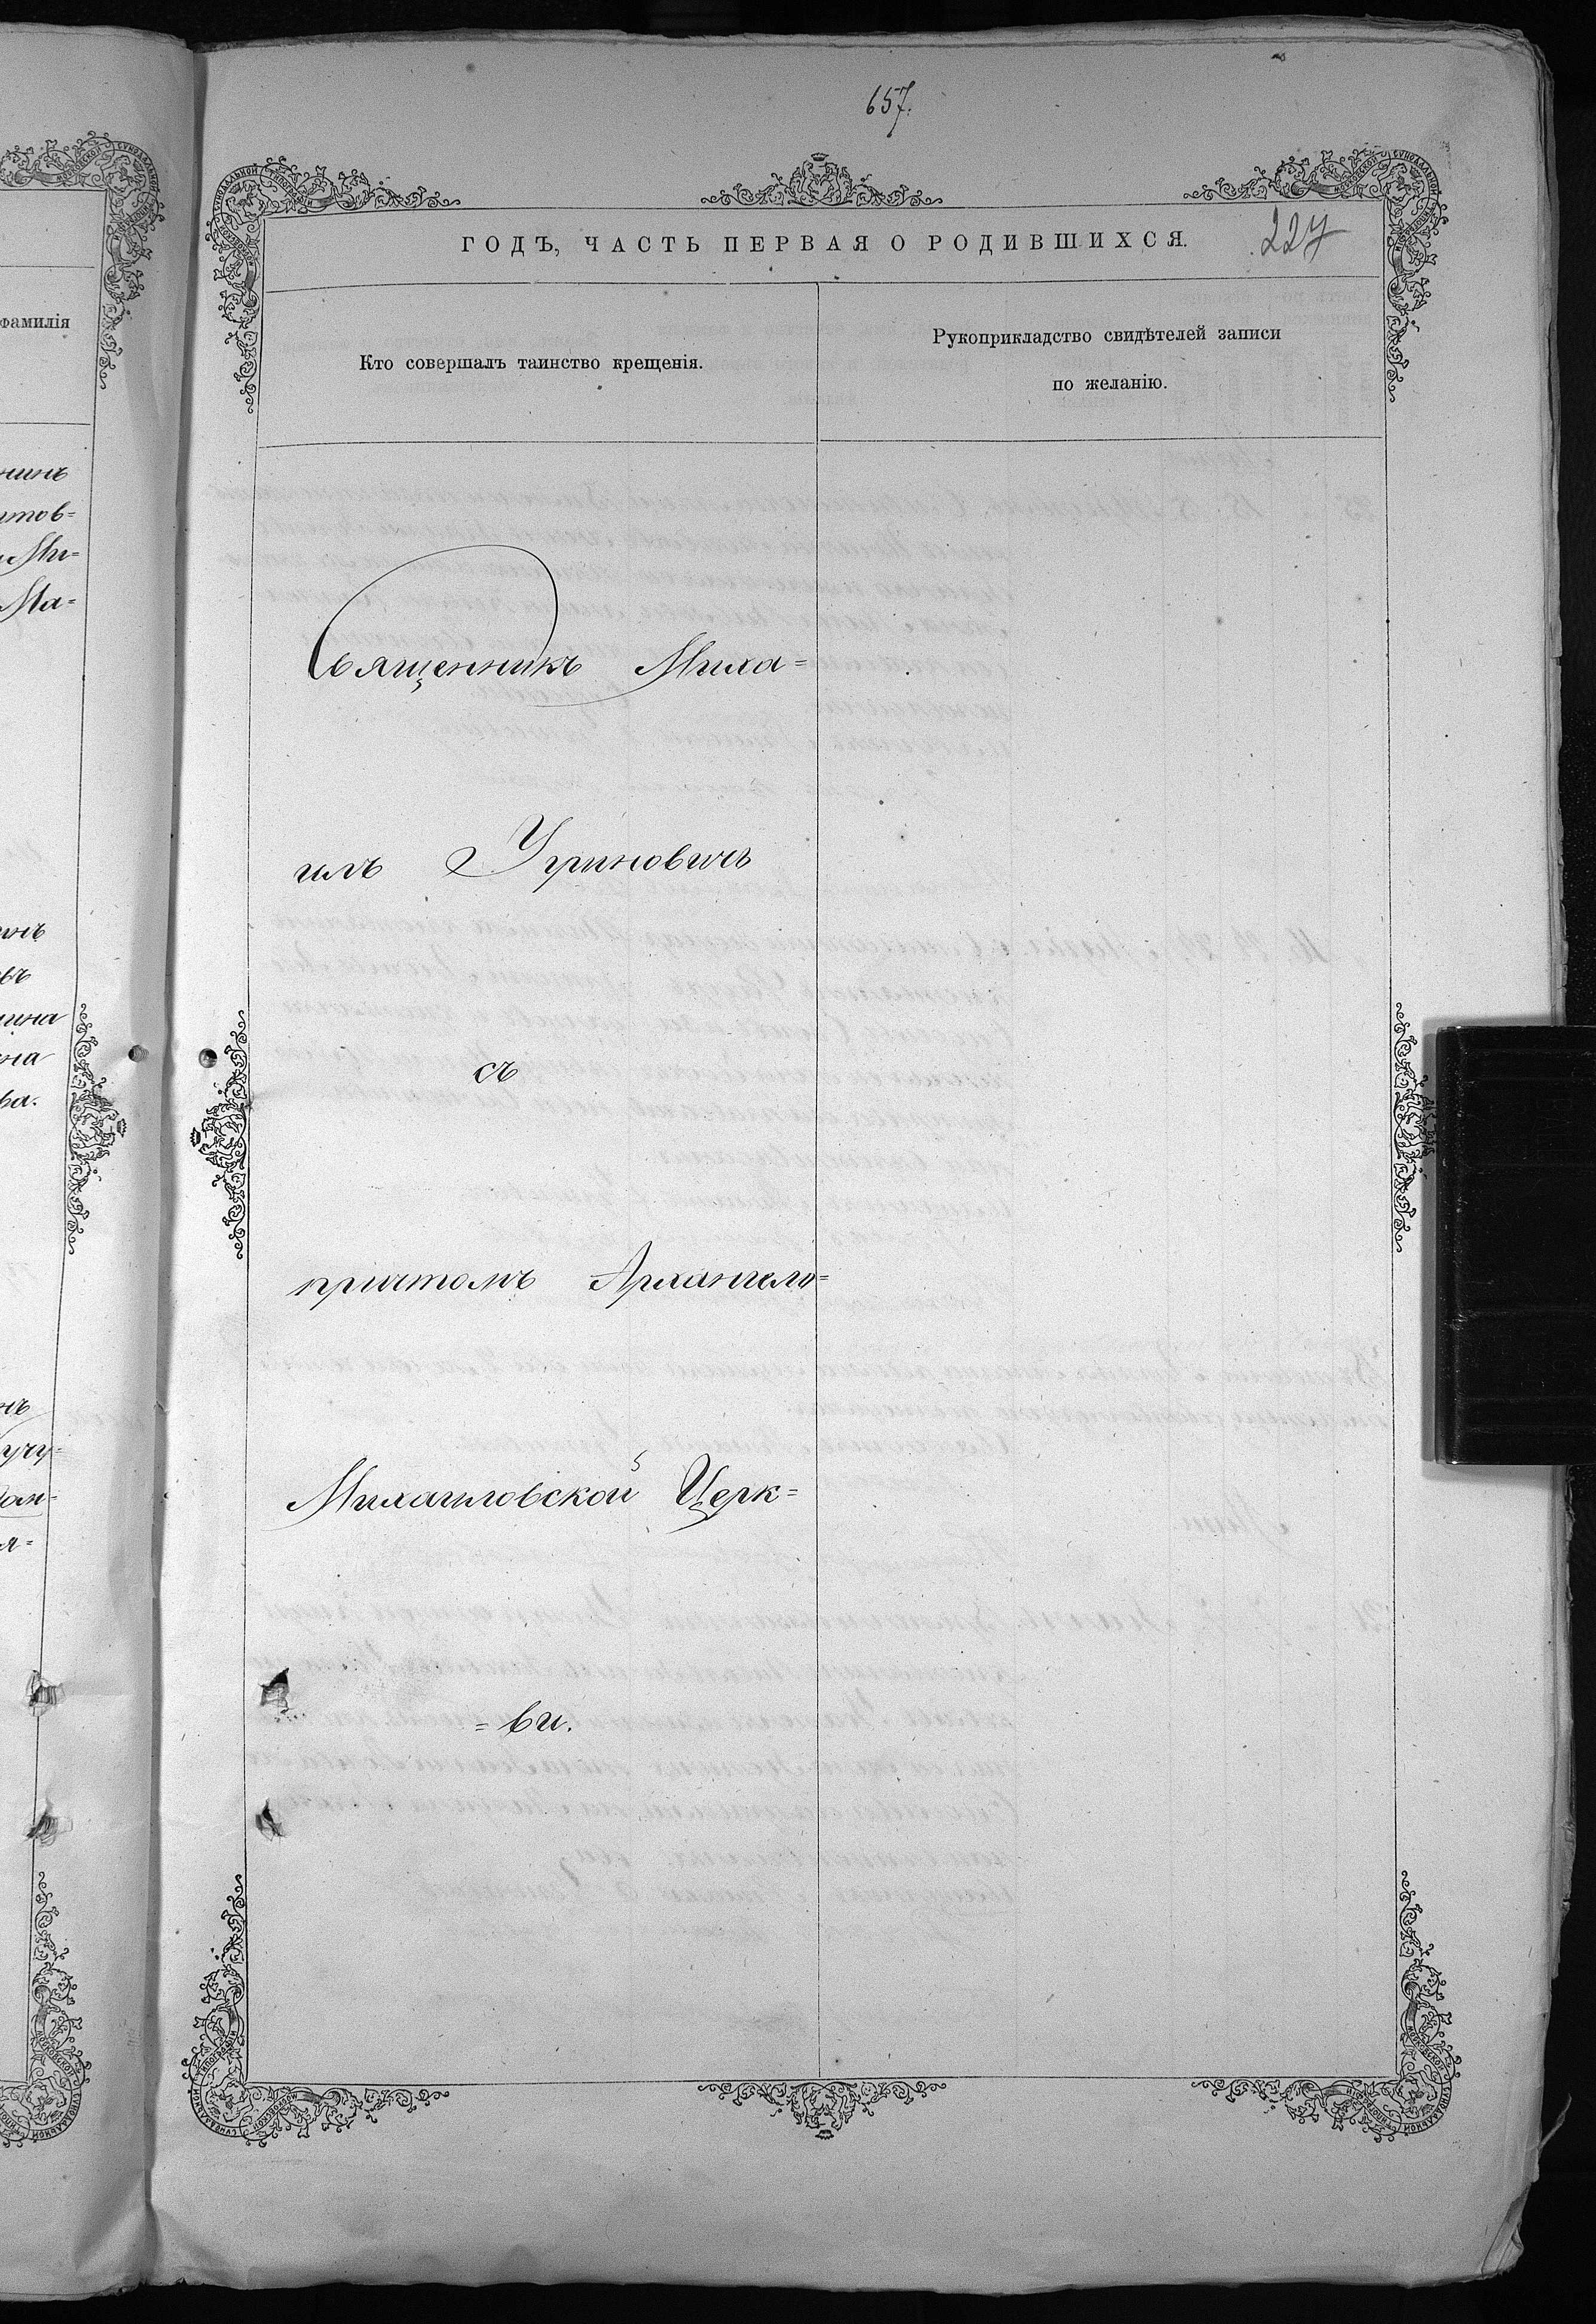 657.
ГОДЪ, ЧАСТЬ ПЕРВАЯ О РОДИВШИХСЯ. 227
фамилія
Кто совершалъ таинство крещенія.
Рукоприкладство свидѣтелей записи
по желанію.
Священникъ Миха=
илъ Угриновичъ
съ
причтомъ Архангело=
Михаиловской Церк=
=ви.